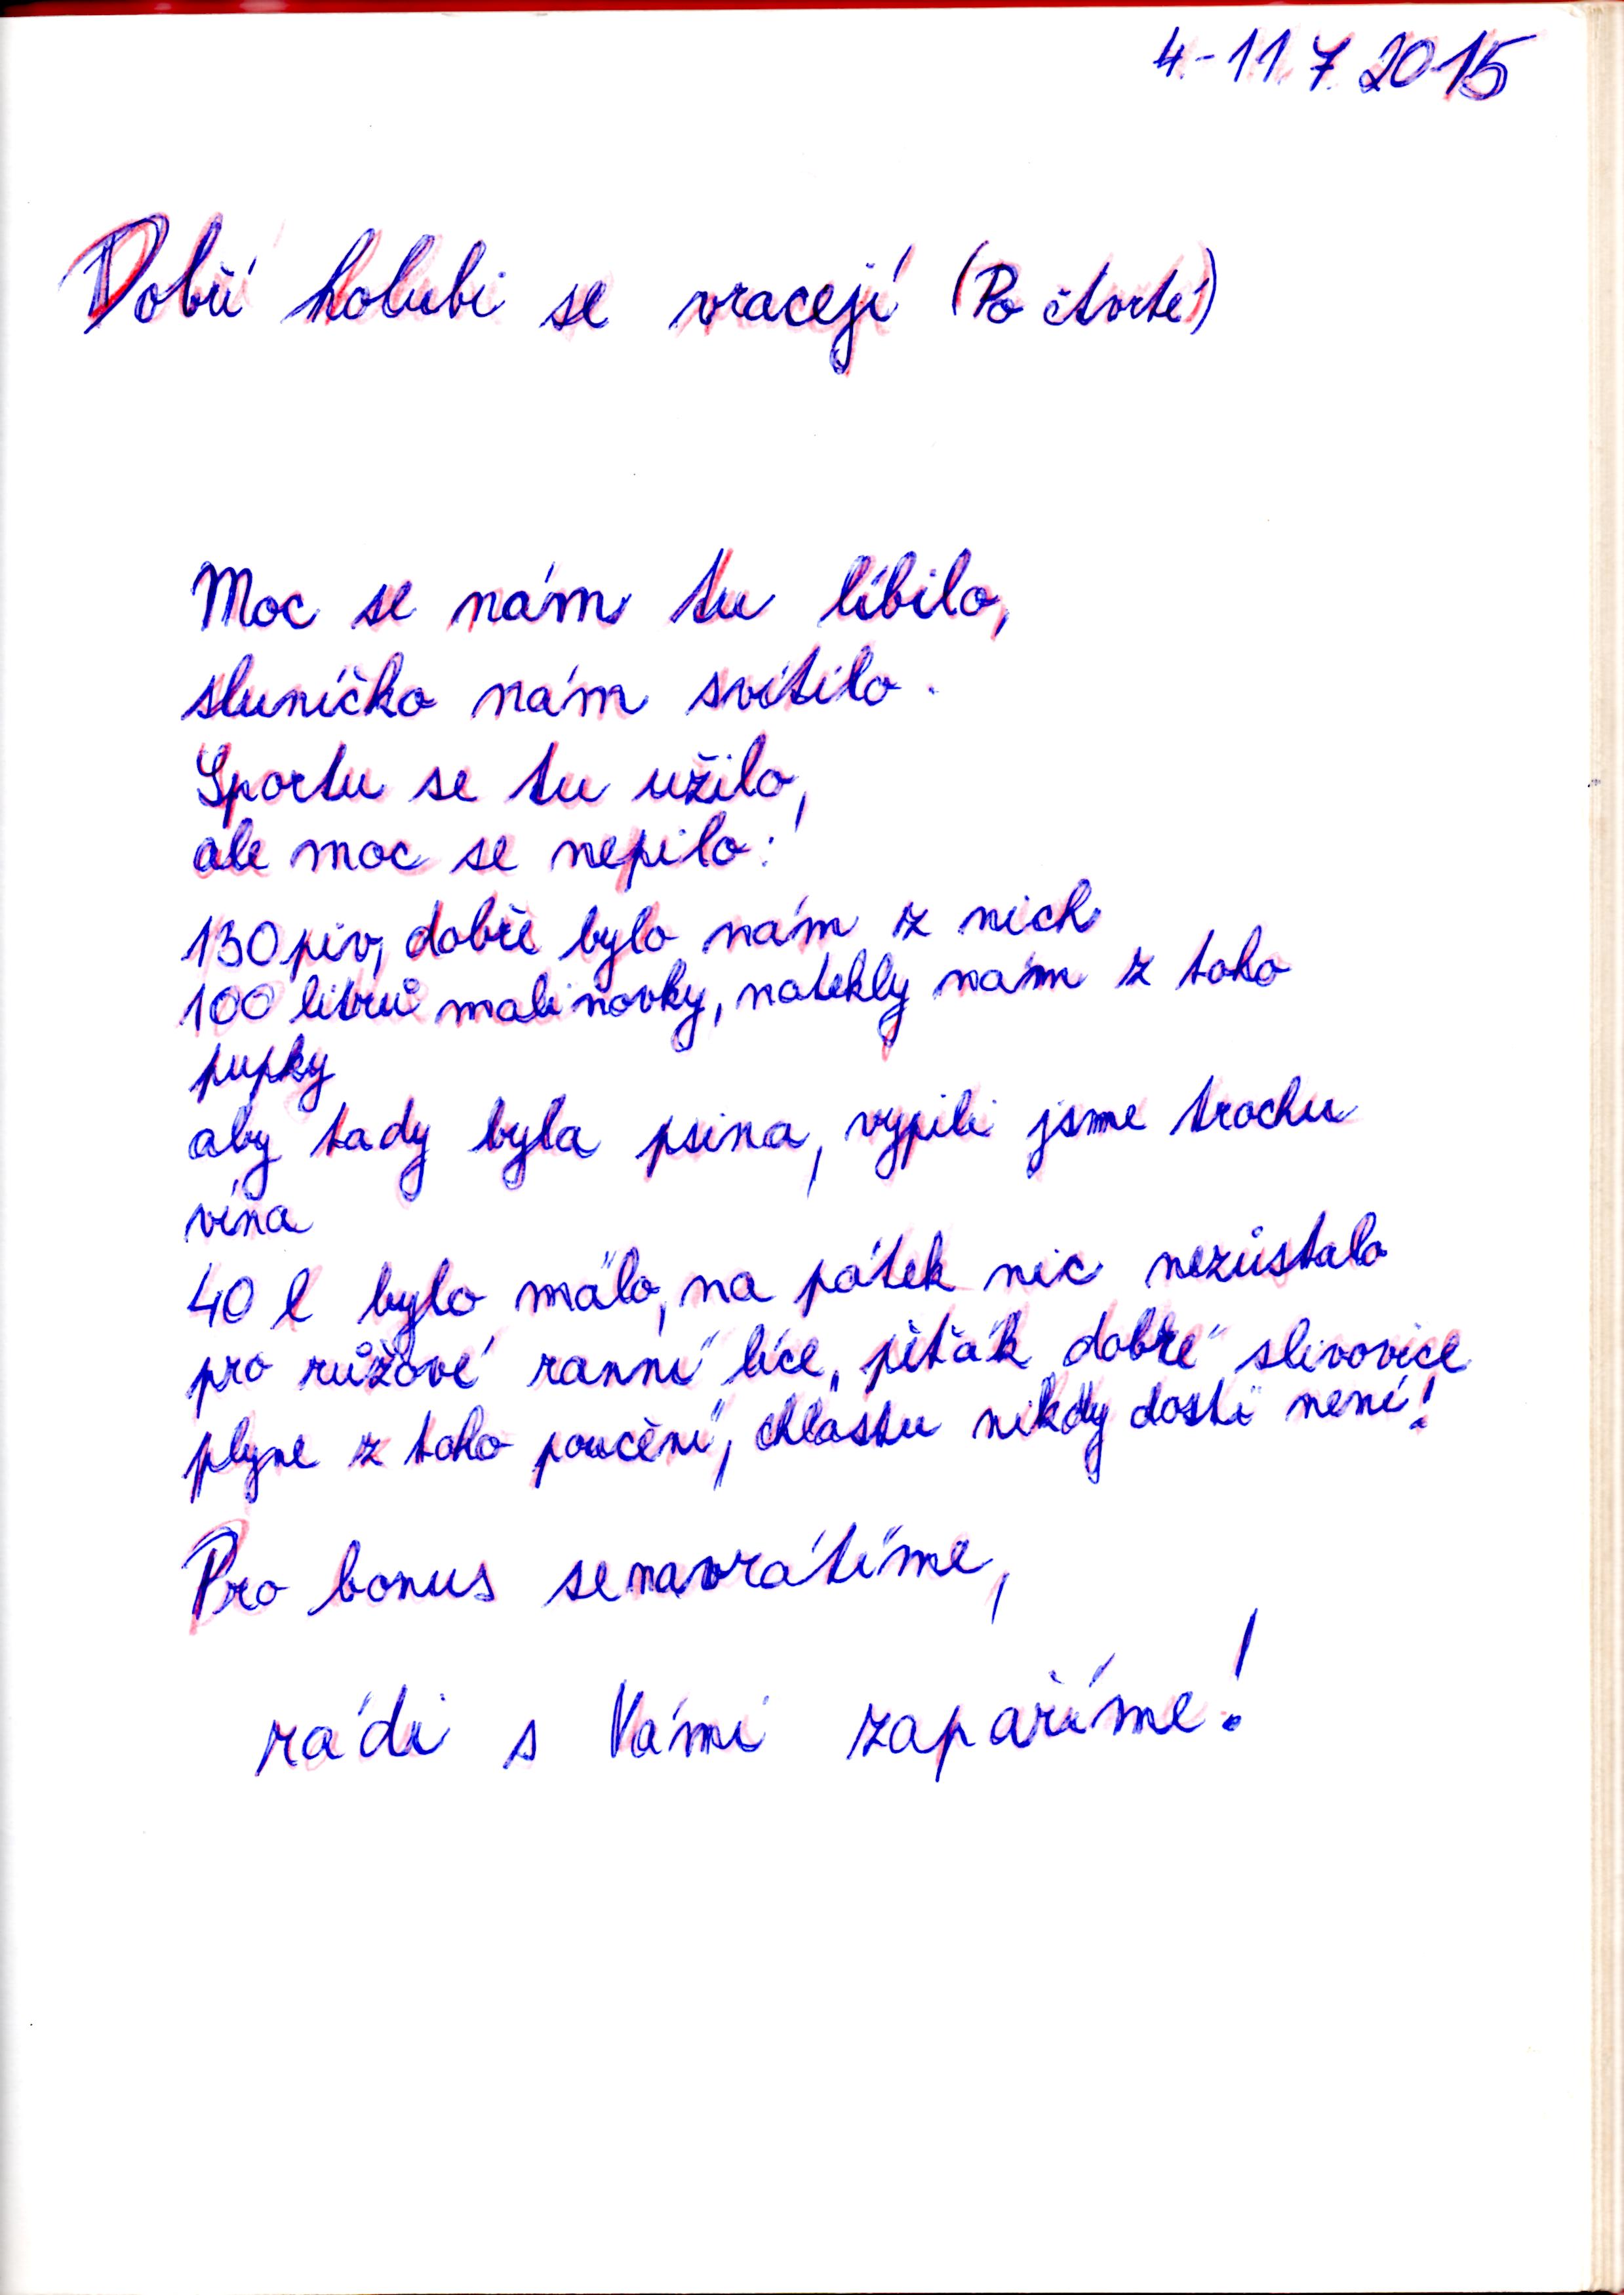 4.-11.7.2015
Dobří holubi se vracejí (Po čtvrté)
Moc se nám tu líbilo,
sluníčko nám svítilo.
Sportu se tu užilo,
ale moc se nepilo:
130 piv, dobře bylo nám z nich
100 litrů malinovky, natekly nám z toho
pupky
aby tady byla psina, vypili jsme trochu
vína
40 l bylo málo, na pátek nic nezůstalo
pro růžové ranní líce, pěťák dobré slivovice
plyne z toho poučení, chlastu nikdy dosti není!
Pro bonus se navrátíme,
rádi s Vámi zapaříme!